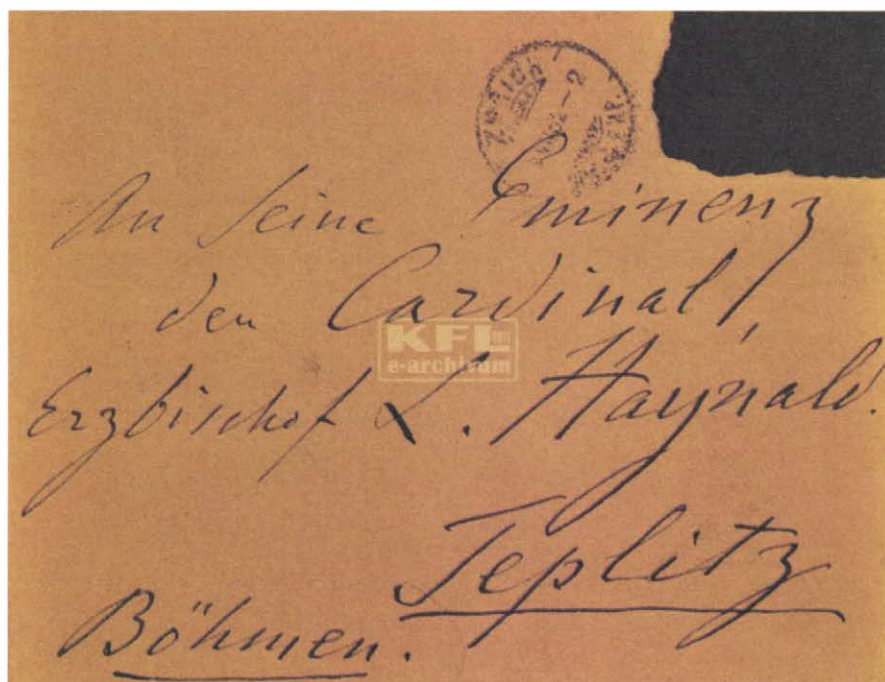 An seine Eminenz
den Cardinal,
Erzbischof L. Haynald.
Teplitz
Böhmen.
KFL
e-archivum